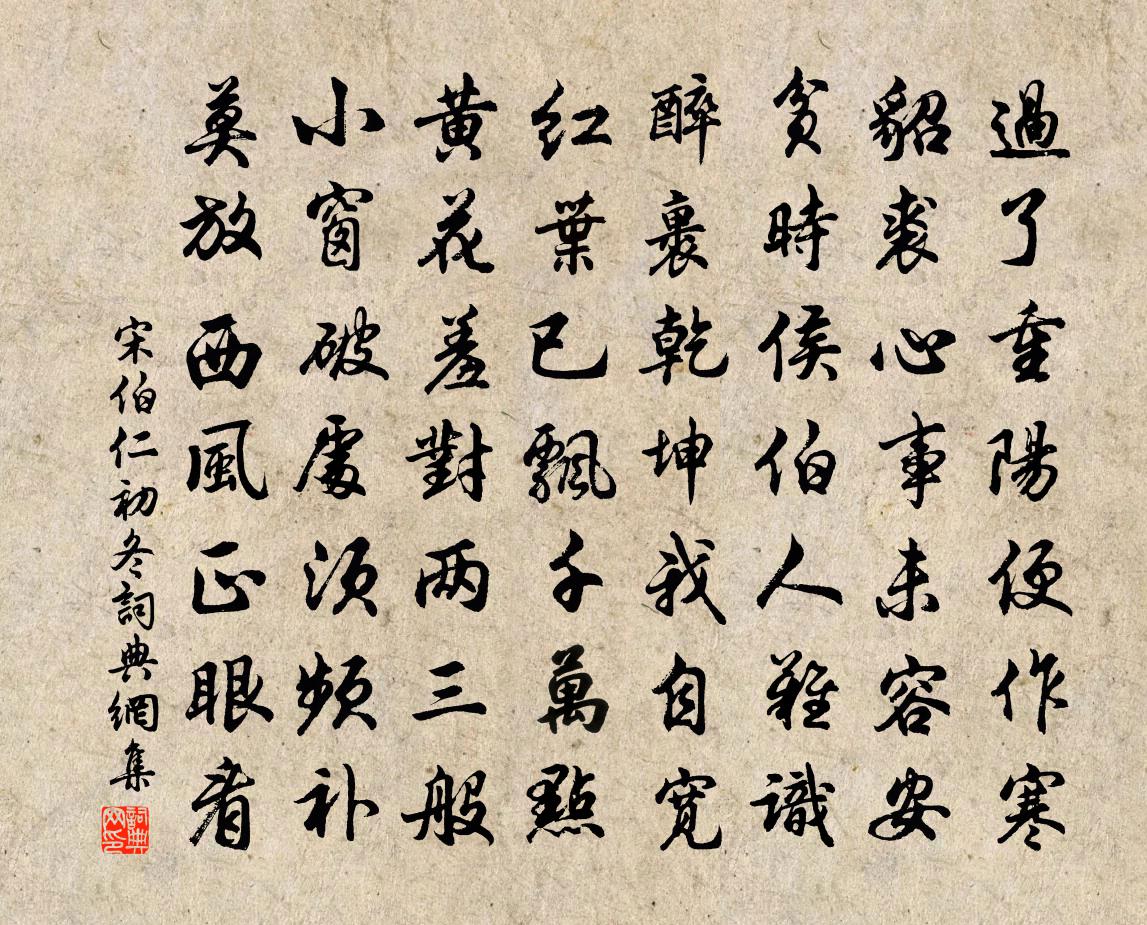 過了重陽便作寒
貂裘心事未容安
貧時侯伯人難識
醉裏乾坤我自寬
紅葉已飄千萬點
黃花羞對两三般
小窗破處須頻补
莫放西風正眼看
宋伯仁初冬詞典網集
詞典網印